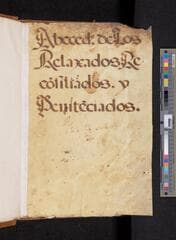 Abeced. de Los
Relaxados Re
cõsiliados. y
Penitẽciados.